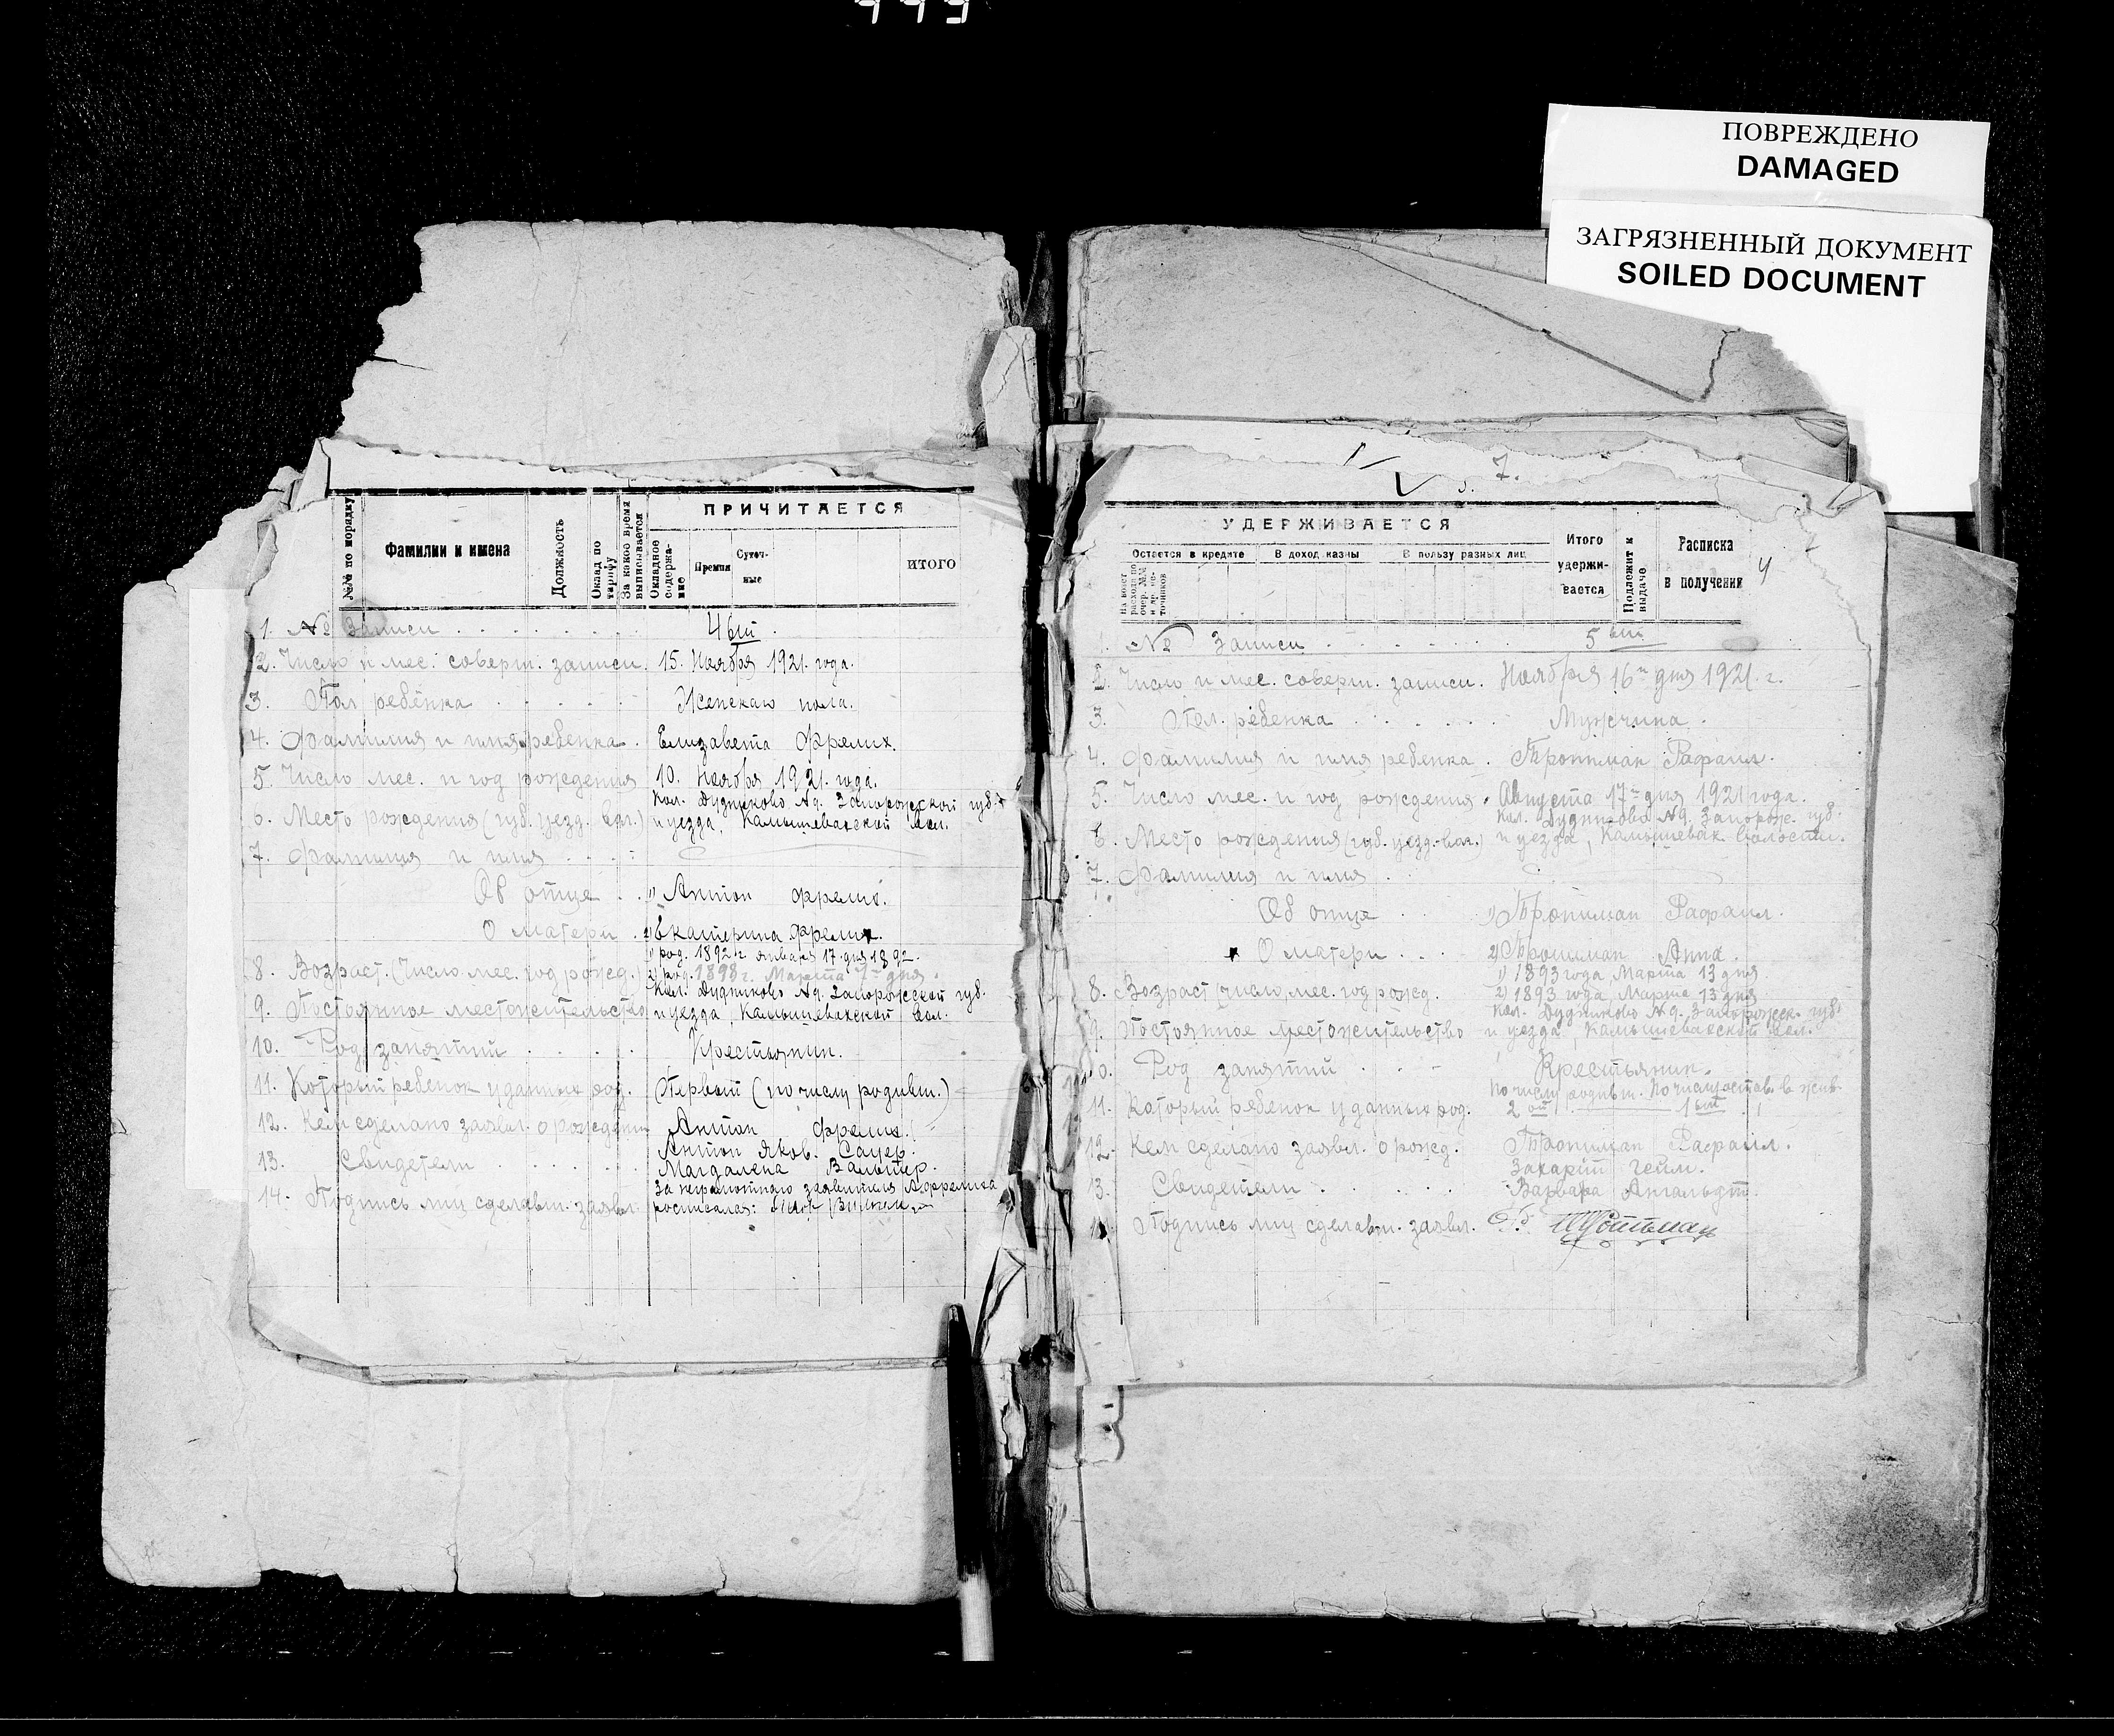 ПОВРЕЖДЕНО
DAMAGED
ЗАГРЯЗНЕННЫЙ ДОКУМЕНТ
SOILED DOCUMENT
№№ по порядку
Фамилии и имена
Должность
Оклад по тарифу
За какое время выписывается
ПРИЧИТАЕТСЯ
Окладное содержа-ние
Премия
Суточ-ные
ИТОГО
1. № Записи 4ый
2. Число и мес. соверш. записи. 15. Ноября 1921. года.
3. Пол ребёнка Женскаго пола.
4. Фамилия и имя ребенка. Елизавета Фрелих.
5. Число мес. и год рождения 10. Ноября 1921. года.
Кол. Дудниково №9. Запорожской губ.
6. Место рождения (губ. уезд. вол.) и уезда, Камышевахской вол.
7. Фамилия и имя
Об отце 1) Антон Фрелих.
О матери 2) Екатерина Фрелих.
1) род. 1892 г. января 17. дня 1892.
8. Возраст. (Число. мес. год рожд.) 2) род. 1898 г. Марта 1го дня.
Кол. Дудниково №9. Запорожской губ.
9. Постоянное местожительство и уезда, Камышевахской вол.
10. Род занятий Крестьянин.
11. Который ребенок у данных род. Первый (по числу родивш.)
12. Кем сделано заявл. о рождении Антон Фрелих.
Антон Яков. Сауер.
13. Свидетели Магдалена Вальтер.
За неграмотного заявителя А. Фрелиха
14. Подпись лиц сделавш. заявл. росписался:
7.
УДЕРЖИВАЕТСЯ
Остается в кредите
В доход казны
В пользу разных лиц
Итого удержи-вается
Подлежит к выдаче
Расписка в получении
4
1. № Записи 5ый
2. Число и мес. соверш. записи. Ноября 16го дня 1921. г.
3. Пол. ребенка Мужчина.
4. Фамилия и имя ребенка. Тротман Рафаил.
5. Число мес. и год рождения. Августа 17го дня 1921 года.
Кол. Дудниково №9. Запорож. губ.
6. Место рождения (губ. уезд. вол.) и уезда, Камышевах. волости.
7. Фамилия и имя
Об отце 1) Тротман Рафаил.
О матери 2) Тротман Анна.
1) 1893 года, Марта 13 дня
8. Возраст (число, мес. год рожд. 2) 1893 года, Марта 13 дня
Кол. Дудниково №9. Запорожск. губ.
9. Постоянное местожительство и уезда, Камышевахской вол.
10. Род занятий Крестьянин.
По числу родивш. По числу остав. в жив.
11. Который ребенок у данных род. 2ой 1ый
12. Кем сделано заявл. о рожд. Тротман Рафаил.
Захарий Гейм.
13. Свидетели Варвара Ангальдт.
Подпись лиц сделавш. заявл.